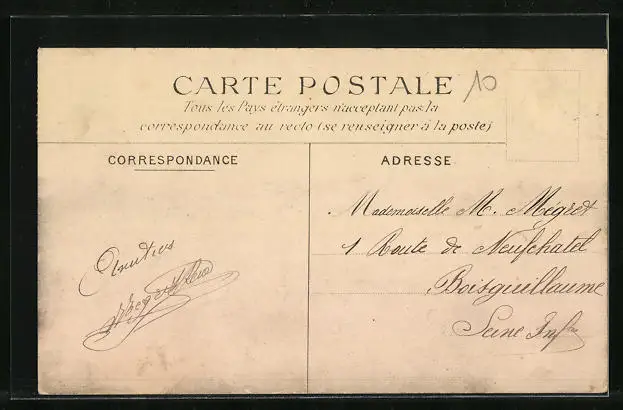 CARTE POSTALE
10
Tous les Pays étrangers n'acceptant pas la
correspondance au recto (se renseigner à la poste)
CORRESPONDANCE
ADRESSE
Mademoiselle M. Mégret
1 Route de Neufchatel
Boisguillaume
Seine Infre
Amitiés